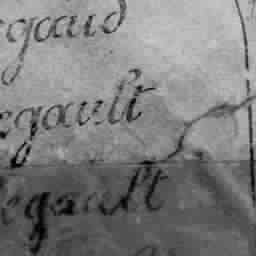 egaud
egault
legault